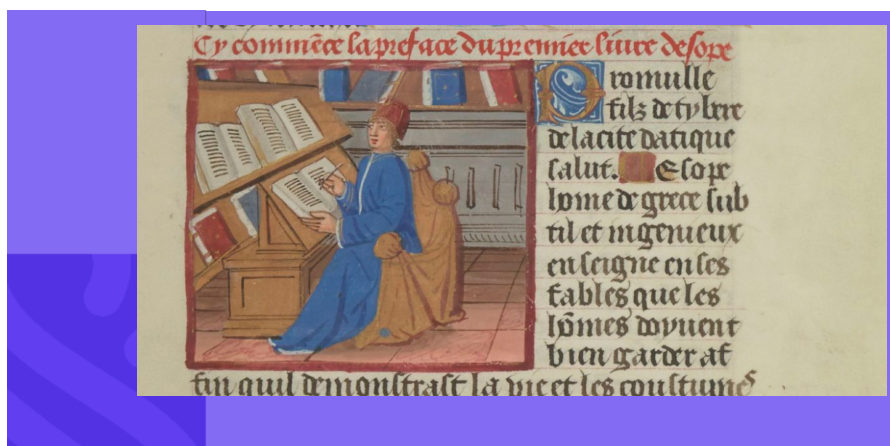 Cy commẽce la preface du premier liure desope
Promulle
filz de tybere
de la cite datique
salut. Esope
home de grece sub
til et ingenieux
enseigne en ses
fables que les
hõmes doyuent
bien garder af
fin quil demonstrast la vie et les coustumes